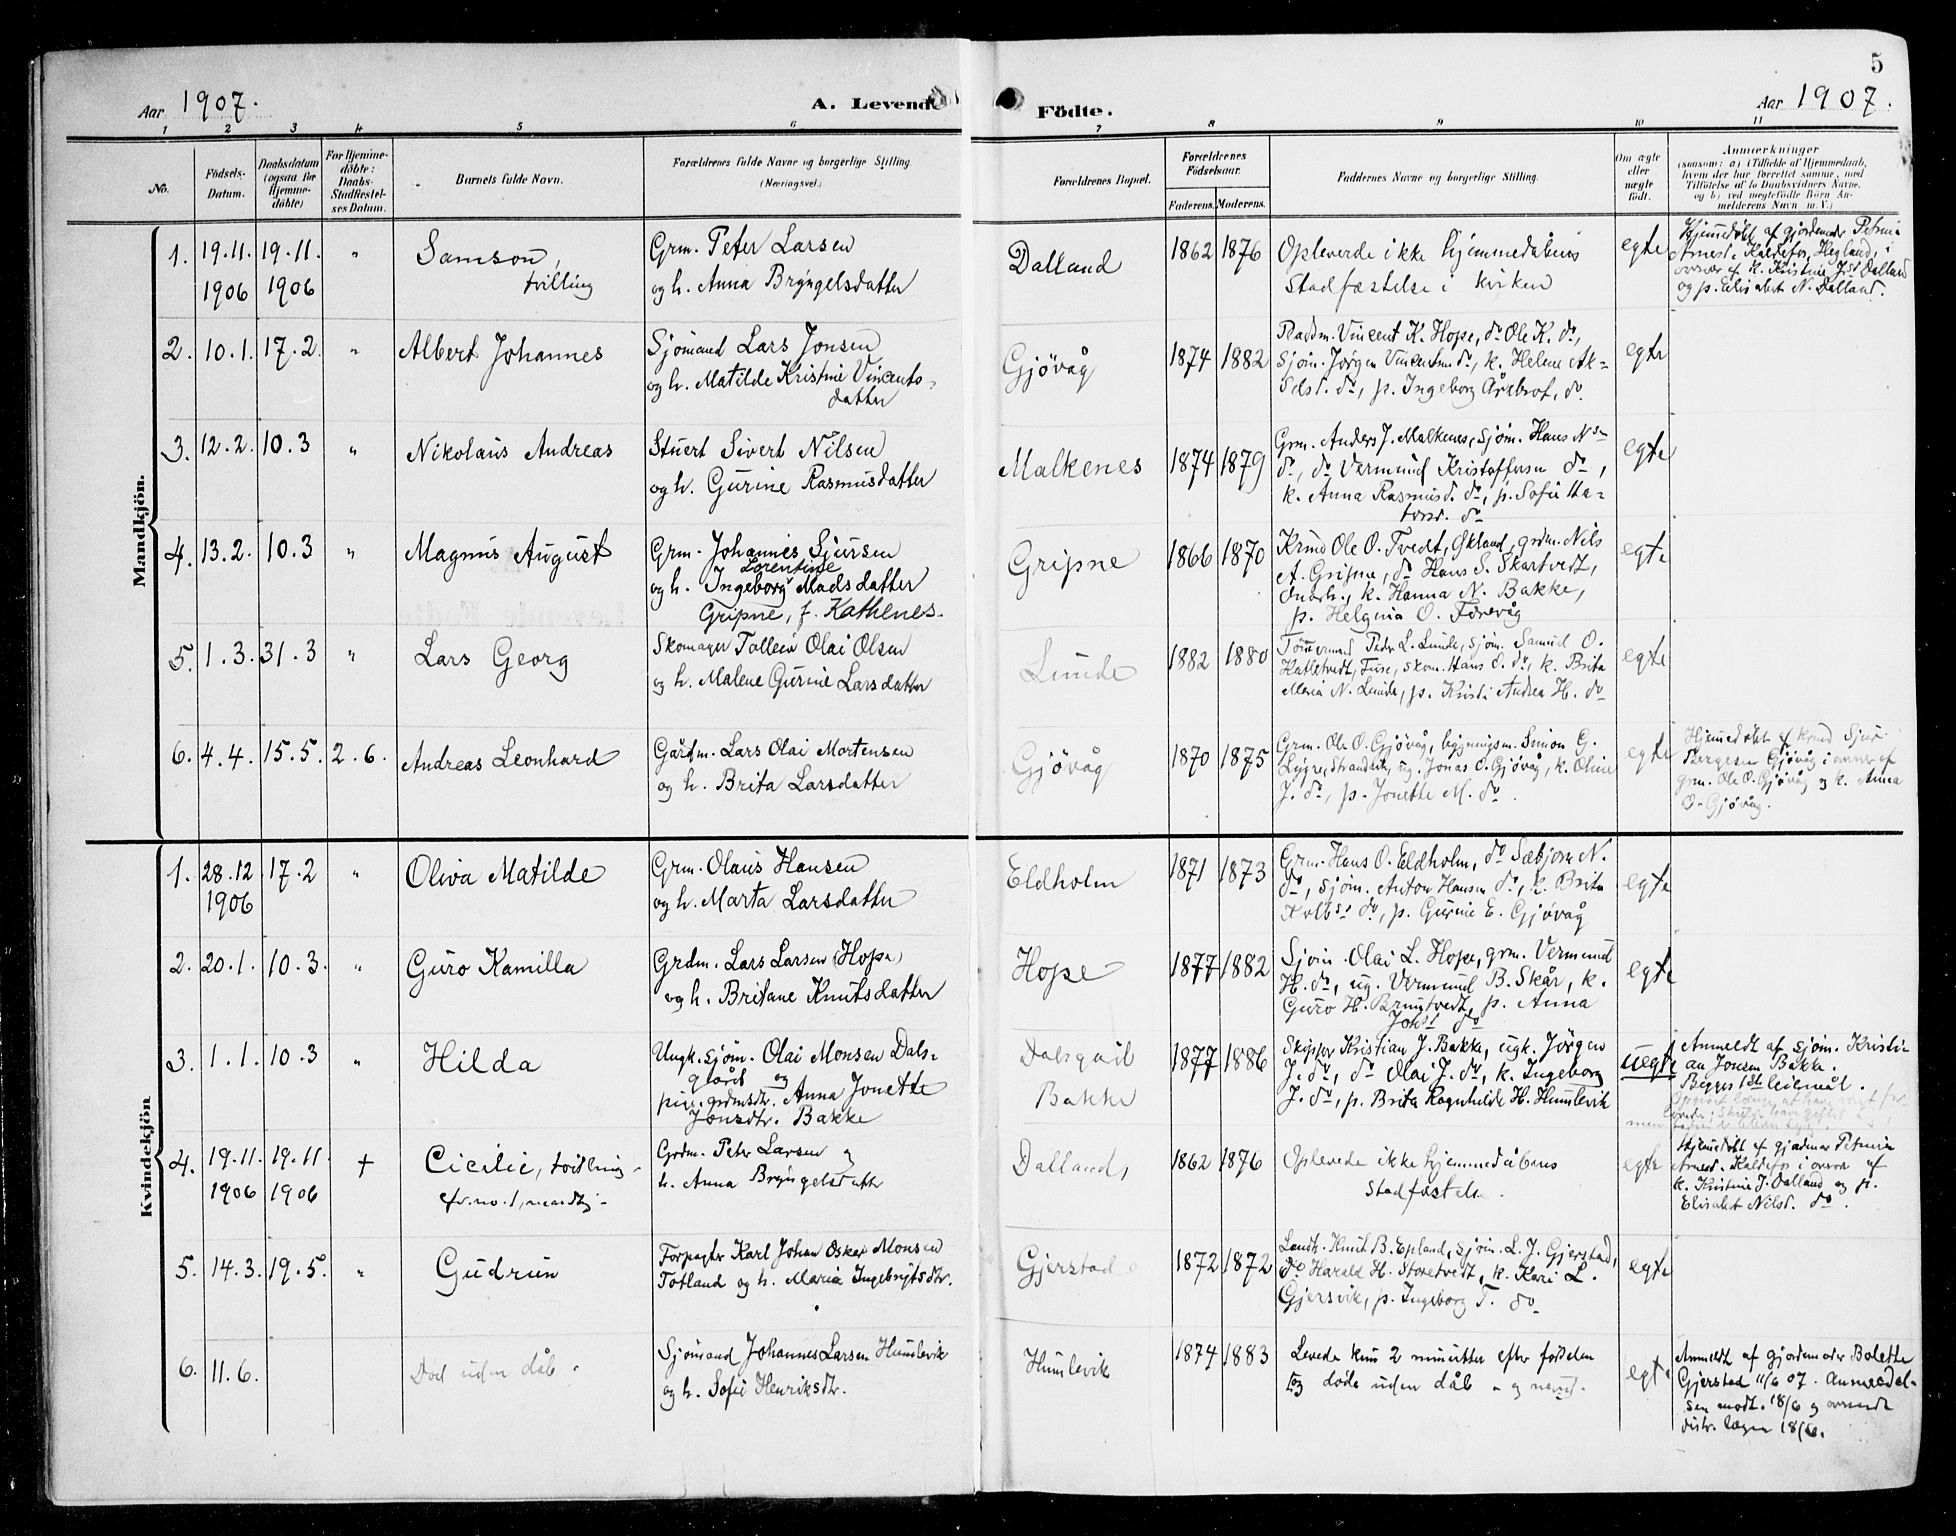 5
Aar 1907.
A. Levende Födte.
Aar 1907.
1 2 3 4 5 6 7 8 9 10 11
No.
Födsels-Datum.
Daabsdatum (ogsaa for Hjemme-döbte)
For Hjemme-döbte: Daabs-Stadfæstel-ses Datum.
Barnets fulde Navn.
Forældrenes fulde Navne og borgerlige Stilling. (Næringsvei.)
Forældrenes Bopæl.
Forældrenes Födselsaar.
Faderens. Moderens.
Faddernes Navne og borgerlige Stilling.
Om ægte eller uægte födt.
Anmærkninger
(saasom: a) i Tilfælde af Hjemmedaab, hvem der har forrettet samme, med Tilföielse af to Daabsvidners Navne, og b) ved uægtefödte Börn An-melderens Navn m. V.)
Mandkjön.
1. 19.11. 1906 19.11. 1906 " Samson, tvilling
Grm. Peter Larsen
og h. Anna Bryngelsdatter
Dalland 1862 1876
Opleverde ikke hjemmedåbens
Stadfæstelse i kirken
egte
Hjemedøbt af gjordemoder Petrine
Arnesd. Kaldefos, Hegland, i
overvær af k. Kristine Jsd Dalland
og p. Elisabet N. Dalland.
2. 10.1. 17.2. " Albert Johannes
Sjömand Lars Jonsen
og h. Matilde Kristine Vincents-
datter
Gjövåg 1874 1882
Vincent K. Hope, do Ole K. do,
Sjöm. Jørgen Vincentsen do, k. Helene Ak-
selsd. do, p. Ingeborg Årebrot, do.
egte
3. 12.2. 10.3 " Nikolaus Andreas
Stuert Sivert Nilsen
og h. Gurine Rasmusdatter
Malkenes 1874 1879
Grm. Anders J. Malkenes, sjöm. Hans Nsn
do, do Vermund Kristoffersen do,
k. Anna Rasmusd. do, p. Sofie Ha-
do
egte
4. 13.2. 10.3 " Magnus August
Grm. Johannes Sjursen
Lorentine
og h. Ingeborg Madsdatter
Gripne, f. Kathenes.
Gripne 1866 1870
Krmd Ole O. Tvedt, Økland, grdm. Nils
A. Gripne, do Hans S. Skartvedt,
Onarh., k. Hanna N. Bakke,
p. Helgina O. Færevåg
egte
5. 1.3. 31.3 " Lars Georg
Skomager Tolleiv Olai Olsen
og h. Malene Gurine Larsdatter
Lunde 1882 1880
Tömmermd Peder L. Lunde, sjöm. Samuel O.
Hatletvedt, Fuse, skom. Hans O. do, k. Brita
Maria N. Lunde, p. Kristi Andrea H. do
egte
6. 4.4. 15.5. 2.6. Andreas Leonhard
Gårdm. Lars Olai Mortensen
og h. Brita Larsdatter
Gjövåg 1870 1875
Grm. Ole O. Gjövåg, bygningsm. Simon G.
Lygre, Strandvik, ug. Jonas O. Gjövåg, k. Oline
J. do, p. Jonette M. do.
egte
Hjemedøbt af krmd Sjur
Bergesen Gjövåg i overvær af
grm. Ole O. Gjövåg og k. Anna
O. Gjövåg.
Kvindekjön
1. 28.12 1906 17.2 " Oliva Matilde
Grm. Olaus Hansen
og h. Marta Larsdatter
Eldholm 1871 1873
Grm. Hans O. Eldholm, do Sæbjörn N.
do, sjöm. Anton Hansen do, k. Brita
do, p. Gurine E. Gjövåg
egte
2. 20.1. 10.3. " Guro Kamilla
Grdm. Lars Larsen (Hope)
og h. Britane Knutsdatter
Hope 1877 1882
Sjöm. Olai L. Hope, grm. Vermund
H. do, ug. Vermund B. Skår, k.
Guro H. Bruntvedt, p. Anna
Johsd do
egte
3. 1.1. 10.3 " Hilda
Ungk. sjöm. Olai Monsen Dals-
gård og
pige, grdmsdtr. Anna Jonette
Jonsdtr. Bakke
Dalsgård
Bakke
1877 1886
Skipper Kristian J. Bakke, ugk. Jörgen
J. do, do Olai J. do, k. Ingeborg
J. do, p. Brita Ragnhilde H. Humlevik
uegte
Anmeldt af sjöm. Kristi-
an Jonsen Bakke.
Begges 1ste leiermål.
4. 19.11. 1906 19.11 1906 † Cicilie, tvilling
cfr. no. 1, mandkj.
Grdm. Peter Larsen og
h. Anna Bryngelsdatter
Dalland, 1862 1876
Oplevede ikke hjemmedåbens
Stadfæstelse.
egte
Hjemedøbt af gjordemor Petrine
Arnesd. Kaldefos i overvær af
k. Kristine J. Dalland og p.
Elisabet Nilsd. do.
5. 14.3. 19.5. " Gudrun
Forpagter Karl Johan Oskar Monsen
Totland og h. Maria Ingebrigtsdtr.
Gjerstad 1872 1872
Landh. Knut B. Epland, sjöm. L. J. Gjerstad,
do Harald H. Storetvedt, k. Kari L.
Gjersvik, p. Ingeborg T. do
egte
6. 11.6. Död uden dåb.
Sjömand Johannes Larsen Humlevik
og h. Sofie Henriksdtr.
Humlevik 1874 1883
Levede kun 2 minutter efter födselen
og döde uden dåb og navn.
egte
Anmeldt af gjordemoder Bolette
Gjerstad 11/6 07. Anmeldel-
sen modt. 18/6 og oversendt
distr. lægen 18/6.